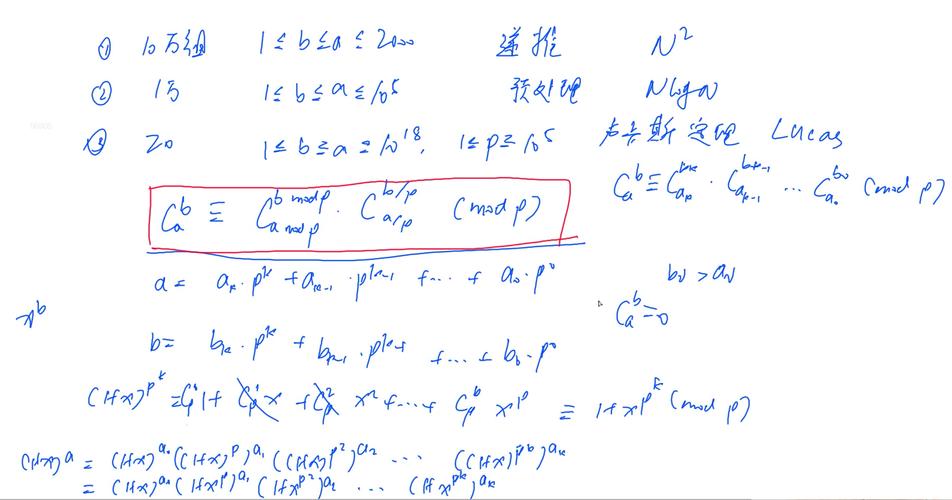 ① 10万组 1 ≤ b ≤ a ≤ 2000 递推 N²
② 1万 1 ≤ b ≤ a ≤ 10⁵ 预处理 NlogN
③ 20 1 ≤ b ≤ a ≤ 10¹⁸, 1 ≤ p ≤ 10⁵ 卢卡斯定理 Lucas
C_a^b ≡ C_{a_k}^{b_k} · C_{a_{k-1}}^{b_{k-1}} ... C_{a_0}^{b_0} (mod p)
C_a^b ≡ C_{a mod p}^{b mod p} · C_{a/p}^{b/p} (mod p)
a = a_k · p^k + a_{k-1} · p^{k-1} + ... + a_0 · p^0
b_0 > a_0
x^b
C_a^b = 0
b = b_k · p^k + b_{k-1} · p^{k-1} + ... + b_0 · p^0
(1+x)^{p^k} ≡ 1 + C_p^1 x + C_p^2 x² + ... + C_p^p x^p ≡ 1 + x^{p^k} (mod p)
(1+x)^a = (1+x)^{a_0} ((1+x)^p)^{a_1} ((1+x)^{p^2})^{a_2} ... ((1+x)^{p^k})^{a_k}
= (1+x)^{a_0} (1+x^p)^{a_1} (1+x^{p^2})^{a_2} ... (1+x^{p^k})^{a_k}